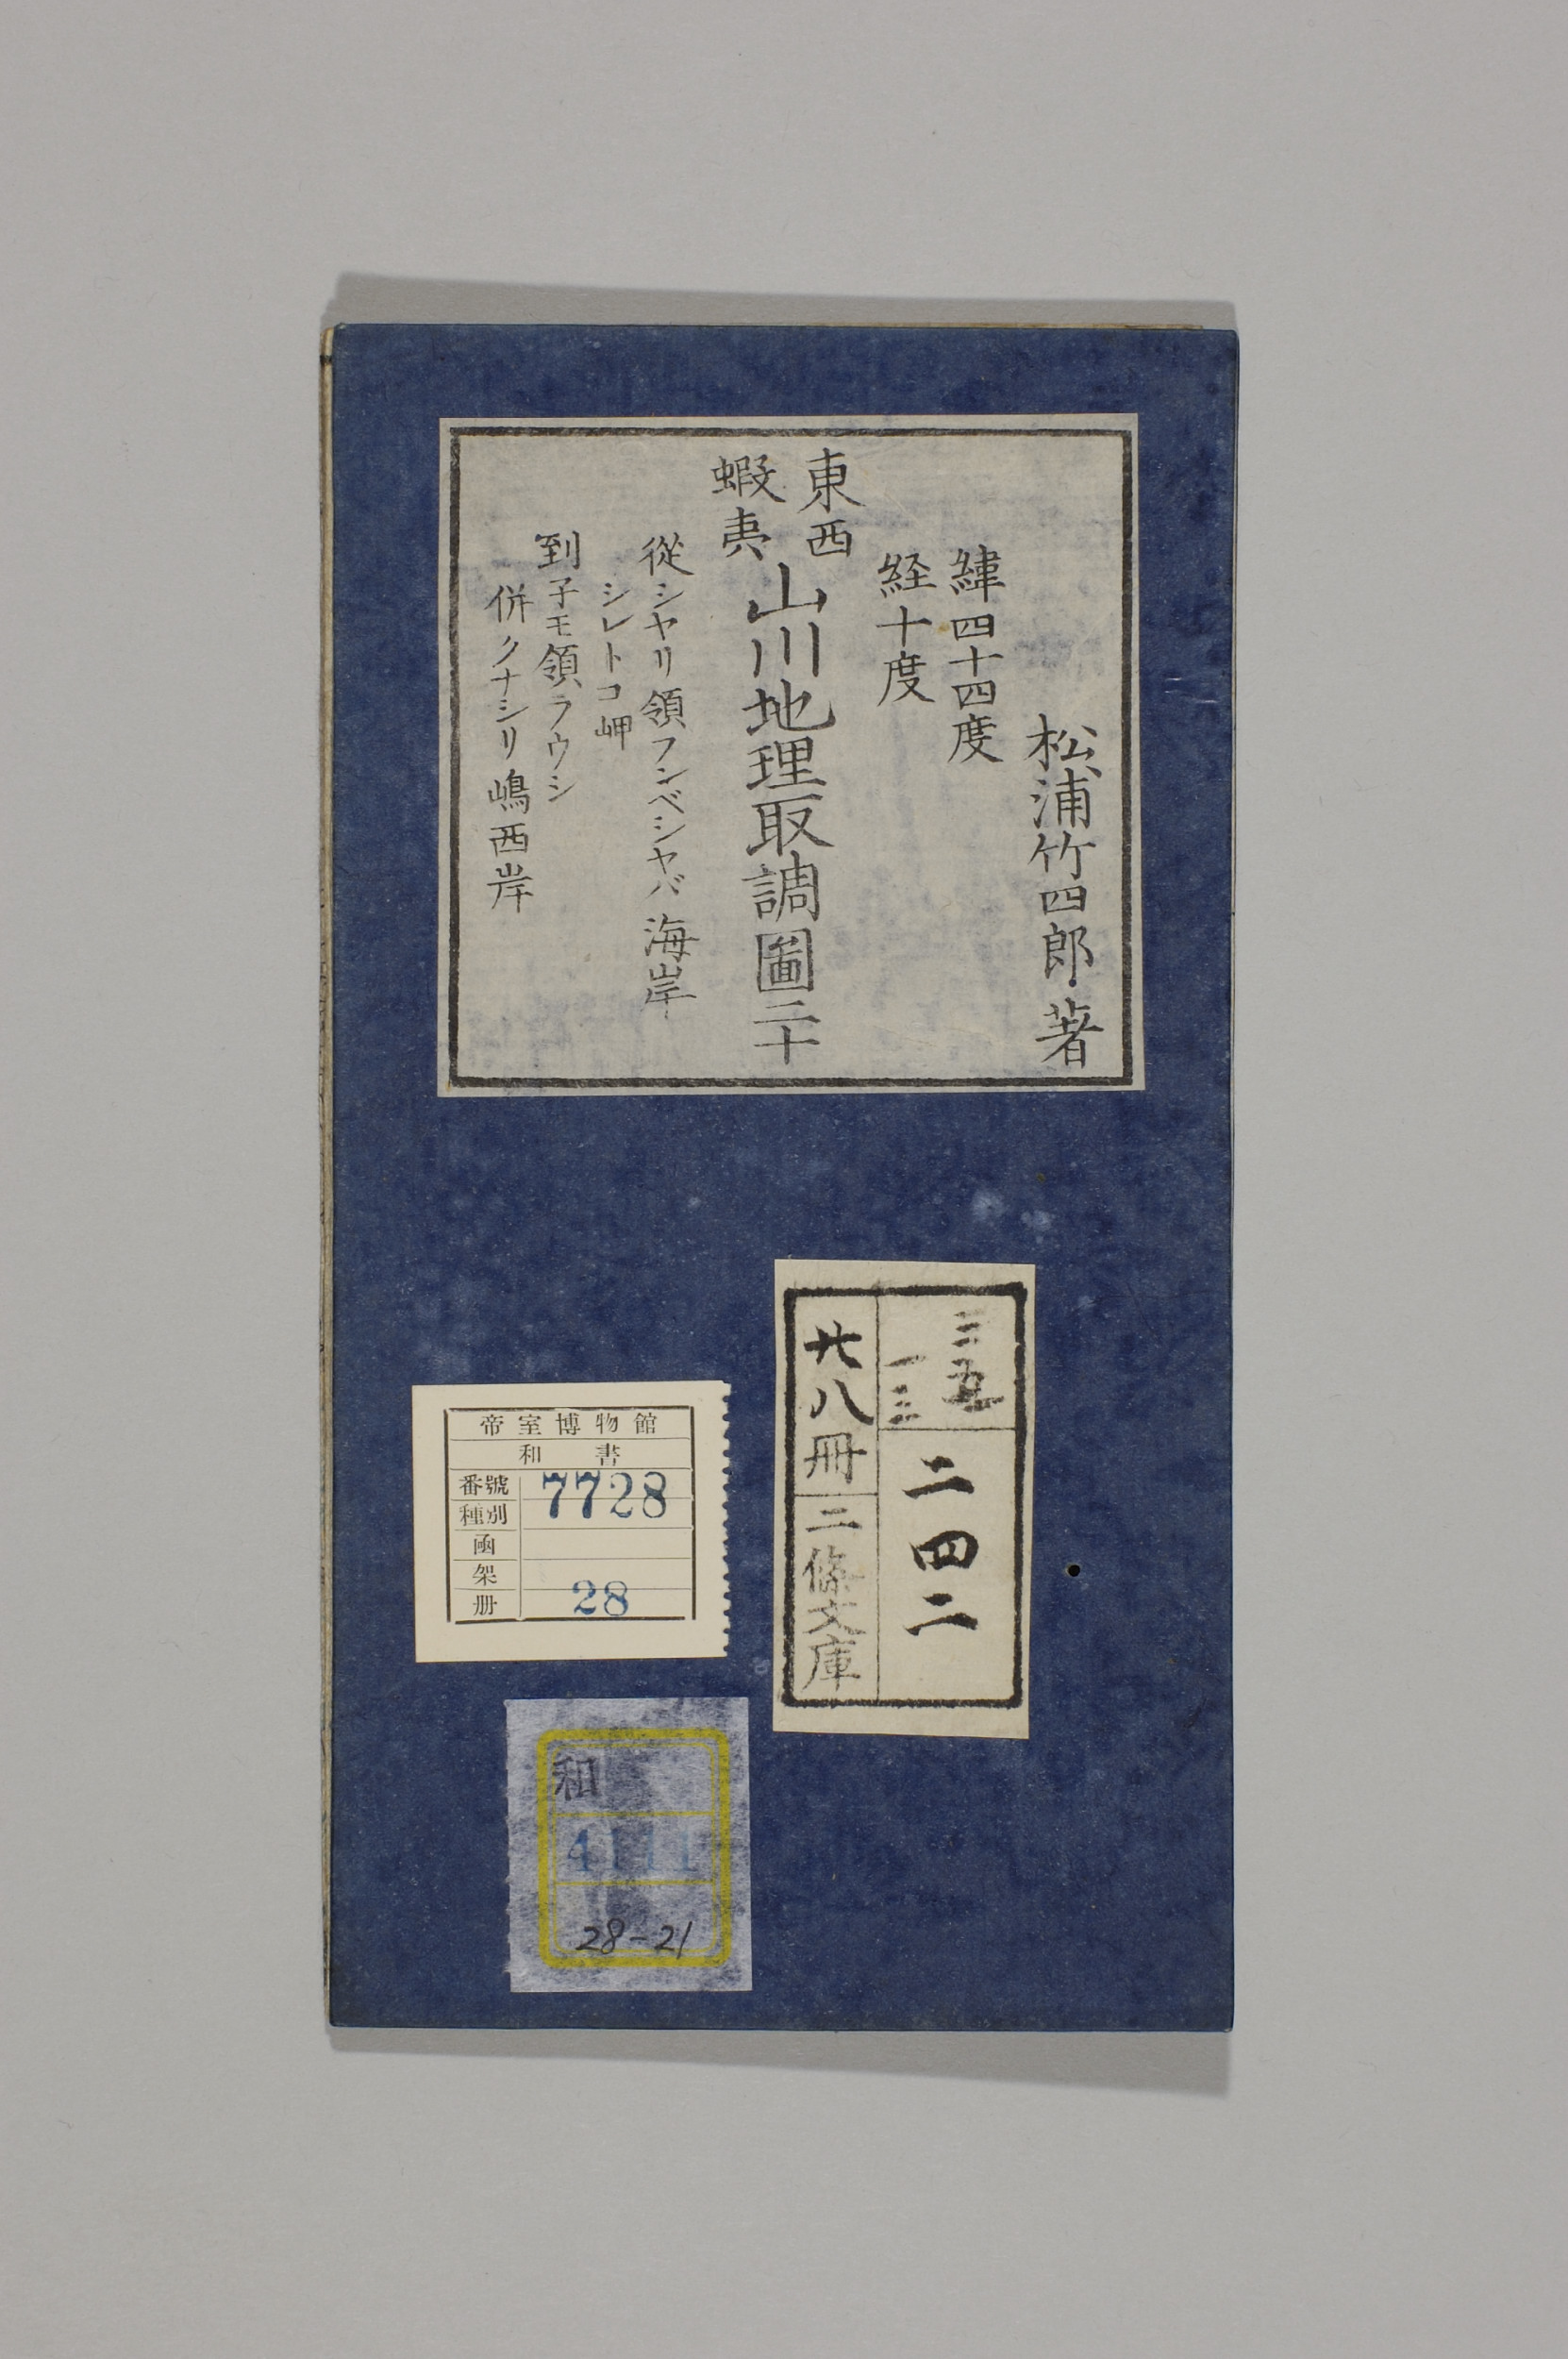 松浦竹四郎著
緯四十四度
経十度
東西
蝦夷
山川地理取調圖二十
從シヤリ領フンベシヤバ海岸
シレトコ岬
到子モ領ラウシ
併クナシリ嶋西岸
一三
二四二
廿八冊
二條文庫
帝室博物館
和書
番號 7728
種別
函
架
册 28
和
4111
28-21